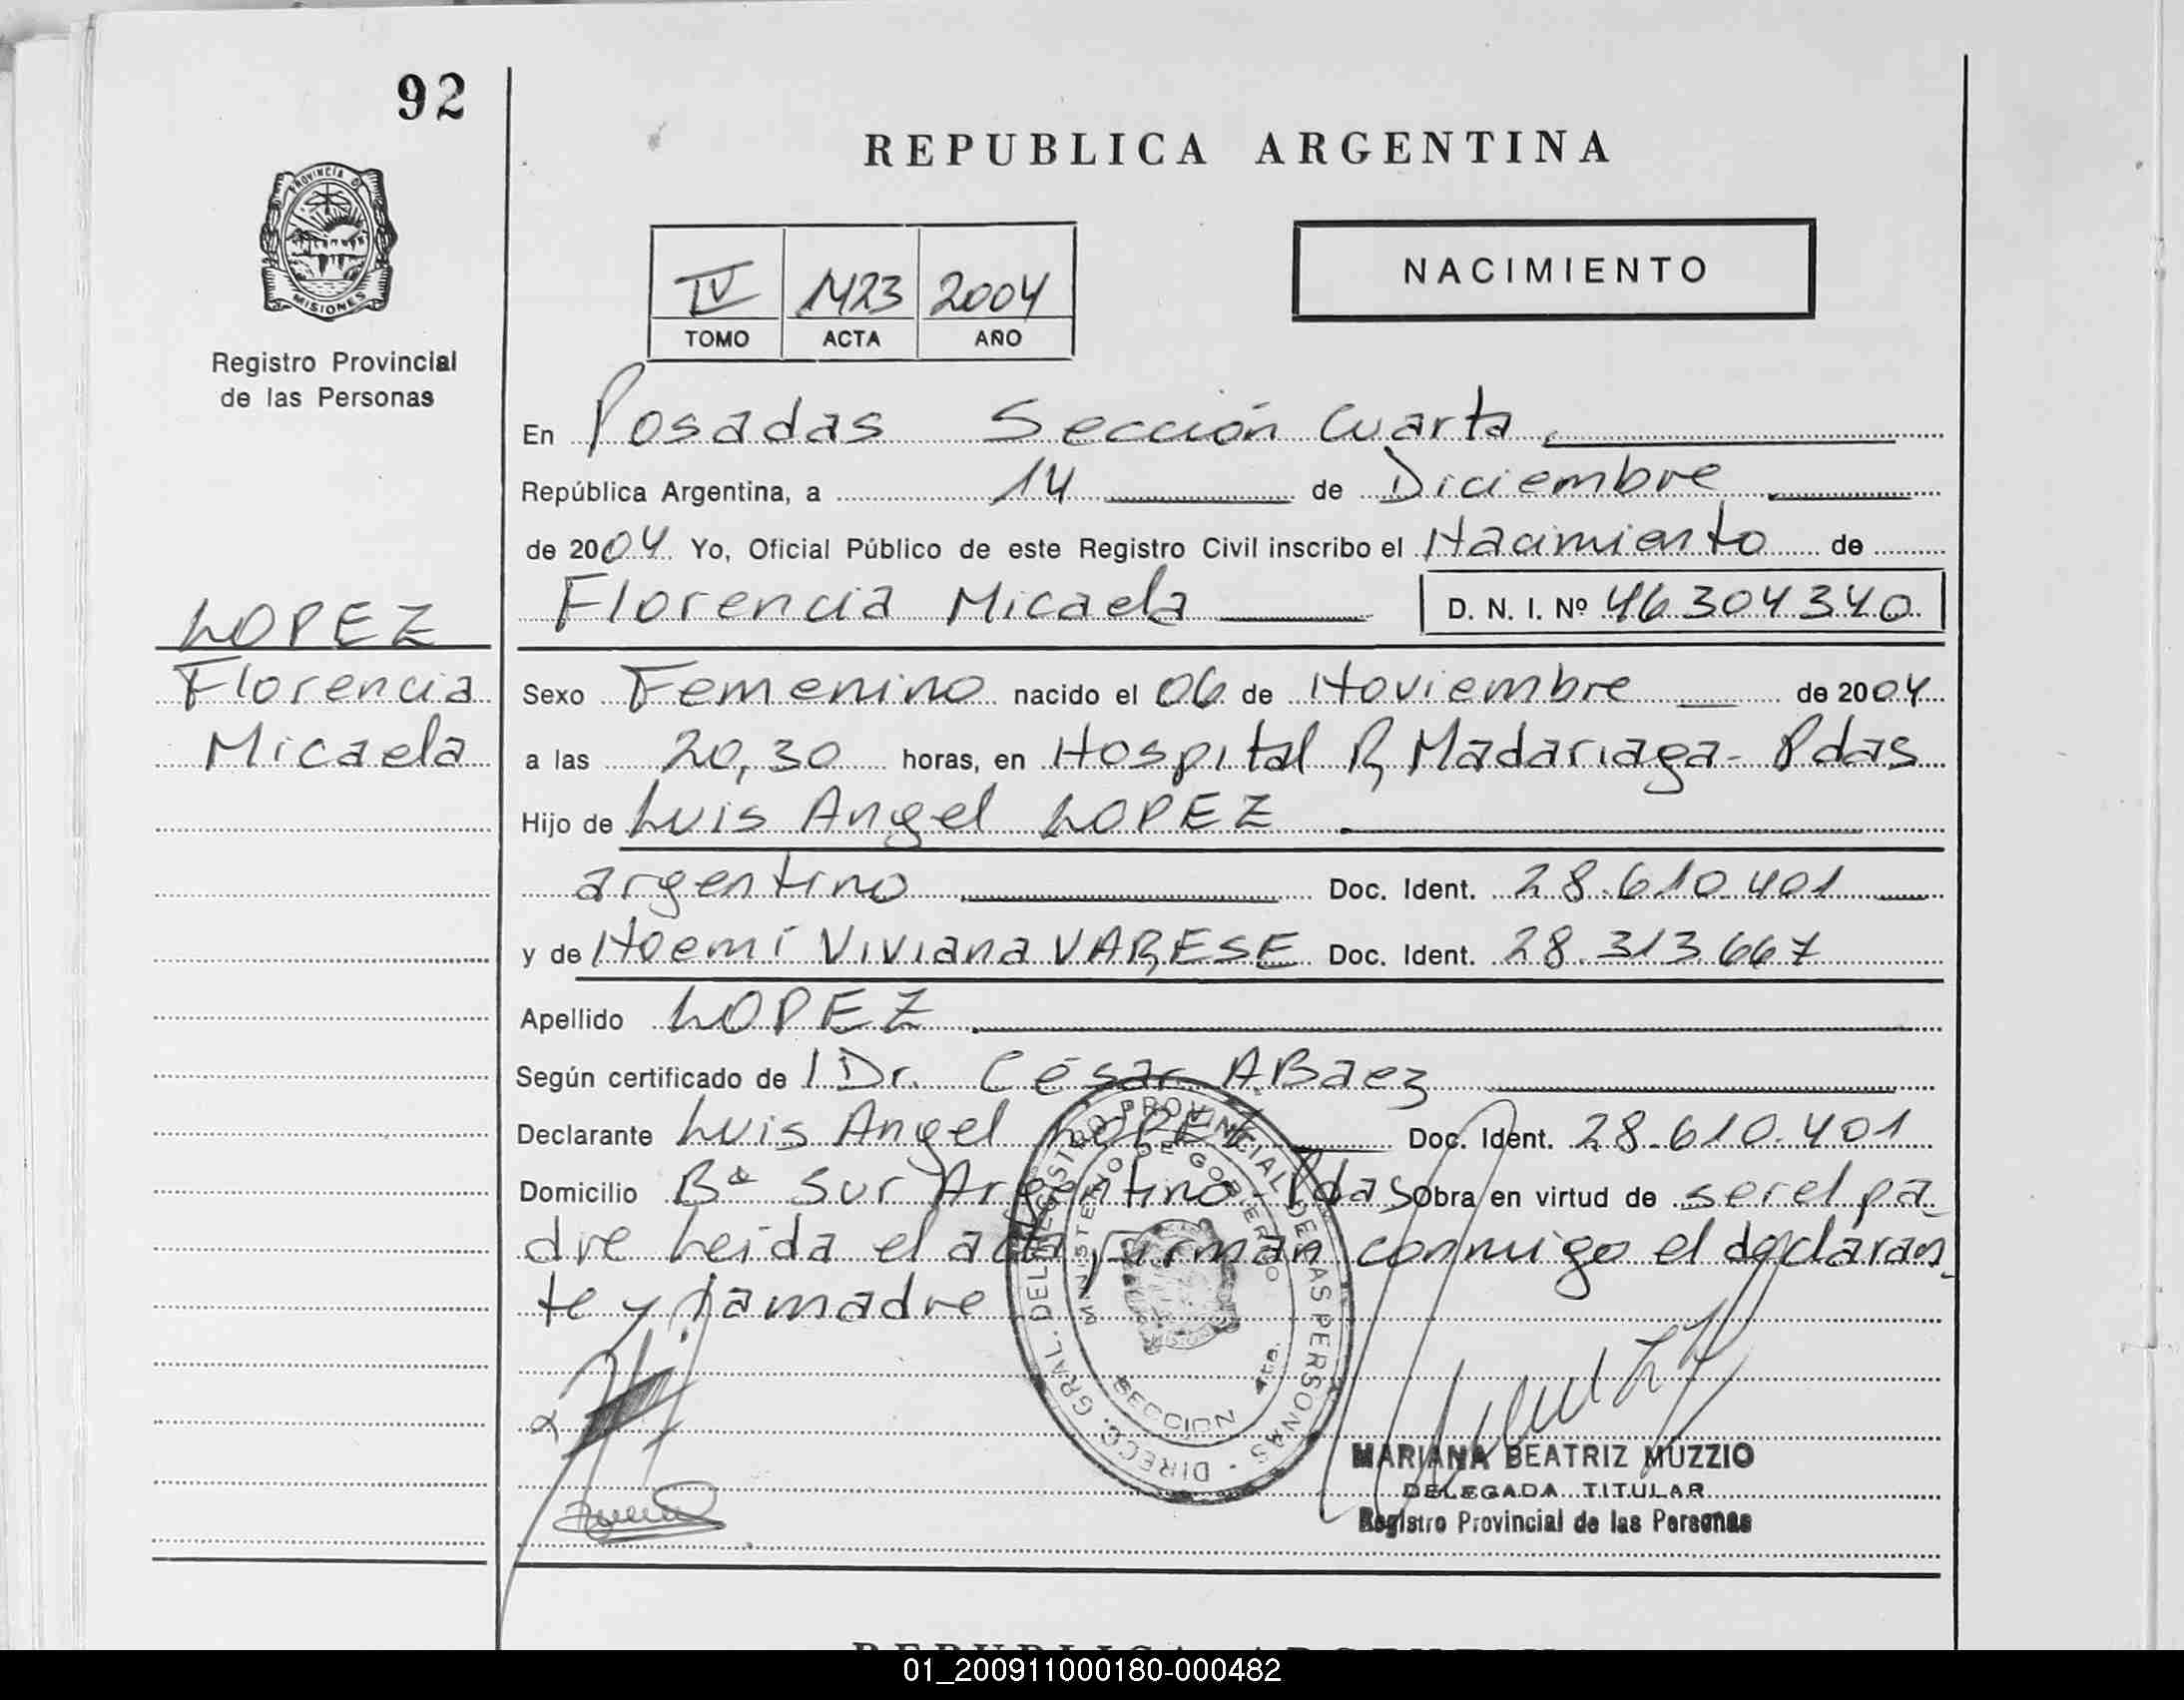 92
REPUBLICA ARGENTINA
PROVINCIA D
MISIONES
Registro Provincial
de las Personas
IV 1423 2004
TOMO ACTA AÑO
NACIMIENTO
En Posadas Sección Cuarta
República Argentina, a 14 de Diciembre
de 2004 Yo, Oficial Público de este Registro Civil inscribo el Nacimiento de
Florencia Micaela D. N. I. Nº 46304340
LOPEZ
Florencia
Micaela
Sexo Femenino nacido el 06 de Noviembre de 2004
a las 20,30 horas, en Hospital R, Madariaga- Pdas
Hijo de Luis Angel LOPEZ
argentino Doc. Ident. 28.610.401
y de Noemí Viviana VARESE Doc. Ident. 28.313.667
Apellido LOPEZ
Según certificado de l Dr. César A. Baez
Declarante Luis Angel LOPEZ Doc. Ident. 28.610.401
Domicilio Bº Sur Argentino-Pdas Obra en virtud de ser el pa_
dre Leida el acta, firman conmigo el declaran_
te y la madre
DIRECC. GRAL. DEL REGISTRO PROVINCIAL DE LAS PERSONAS -
MINISTERIO DE GOBIERNO
SECCION 4ta.
MARIANA BEATRIZ MUZZIO
DELEGADA TITULAR
Registro Provincial de las Personas
REPUBLICA ARGENTINA
01_200911000180-000482